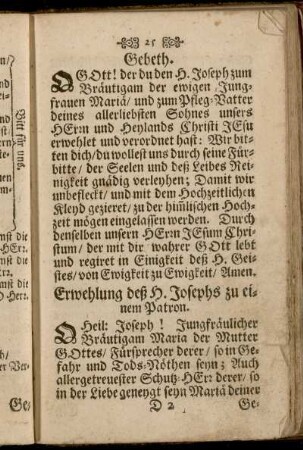 25
Gebeth.
O GOtt! der du den H. Joseph zum
Bräutigam der ewigen Jung-
frauen Mariä / und zum Pfleg-Vatter
deines allerliebsten Sohnes unsers
HErn und Heylands Christi JEsu
erwehlet und verordnet hast: Wir bit-
ten dich / du wollest uns durch seine Für-
bitte / der Seelen und deß Leibes Rei-
nigkeit gnädig verleyhen; Damit wir
unbefleckt / und mit dem Hochzeitlichen
Kleyd gezieret / zu der himlischen Hoch-
zeit mögen eingelassen werden. Durch
denselben unsern HErrn JEsum Chri-
stum / der mit dir wahrer GOtt lebt
und regiret in Einigkeit deß H. Gei-
stes / von Ewigkeit zu Ewigkeit / Amen.
Erwehlung deß H. Josephs zu ei-
nem Patron.
O Heil: Joseph! Jungfräulicher
Bräutigam Maria der Mutter
GOttes / Fürsprecher derer / so in Ge-
fahr und Tods-Nöthen seyn; Auch
allergetreuester Schutz-HErr derer / so
in der Liebe geneygt seyn Mariä deiner
D 2 Ge-
Bitt für uns.